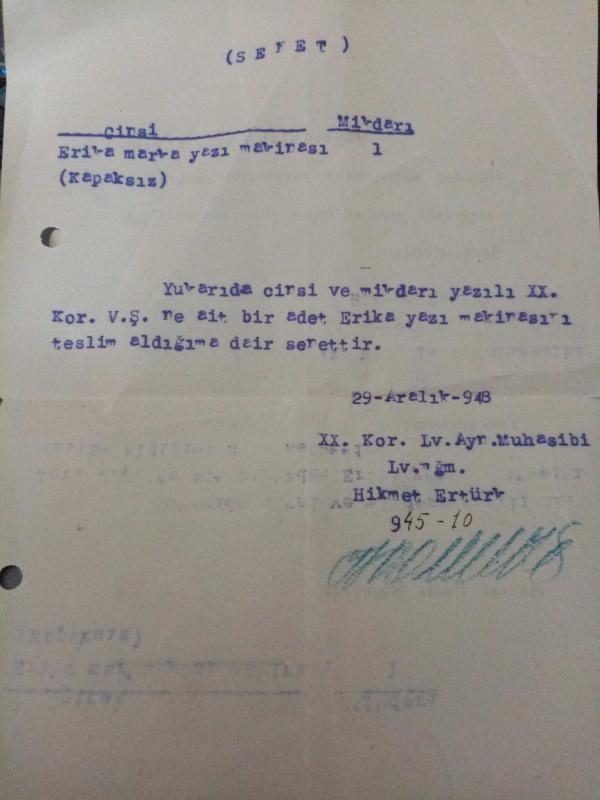 ( S E N E T )
Cinsi Mikdarı
Erika marka yazı makinası 1
(Kapaksız)
Yukarıda cinsi ve mikdarı yazılı XX.
Kor. V.Ş. ne ait bir adet Erika yazı makinasını
teslim aldığıma dair senettir.
29-Aralık-948
XX. Kor. Lv. Ayn. Muhasibi
Lv.
Hikmet Ertürk
945-10